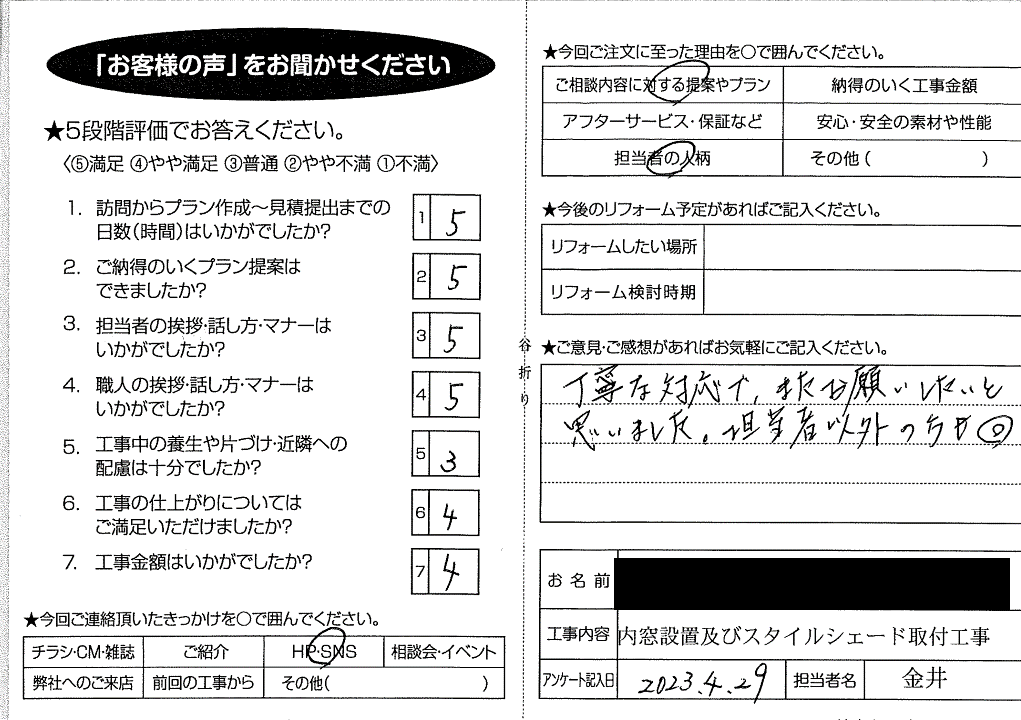 「お客様の声」をお聞かせください
★5段階評価でお答えください。
〈⑤満足 ④やや満足 ③普通 ②やや不満 ①不満〉
1. 訪問からプラン作成〜見積提出までの
日数(時間)はいかがでしたか?
1 5
2. ご納得のいくプラン提案は
できましたか?
2 5
3. 担当者の挨拶・話し方・マナーは
いかがでしたか?
3 5
4. 職人の挨拶・話し方・マナーは
いかがでしたか?
4 5
5. 工事中の養生や片づけ・近隣への
配慮は十分でしたか?
5 3
6. 工事の仕上がりについては
ご満足いただけましたか?
6 4
7. 工事金額はいかがでしたか?
7 4
★今回ご連絡頂いたきっかけを○で囲んでください。
チラシ・CM・雑誌 ご紹介 HP・SNS 相談会・イベント
弊社へのご来店 前回の工事から その他( )
谷折り
★今回ご注文に至った理由を○で囲んでください。
ご相談内容に対する提案やプラン 納得のいく工事金額
アフターサービス・保証など 安心・安全の素材や性能
担当者の人柄 その他( )
★今後のリフォーム予定があればご記入ください。
リフォームしたい場所
リフォーム検討時期
★ご意見・ご感想があればお気軽にご記入ください。
丁寧な対応で、またお願いしたいと
思いました。担当者以外の方も◎
お名前
工事内容 内窓設置及びスタイルシェード取付工事
アンケート記入日 2023.4.29 担当者名 金井